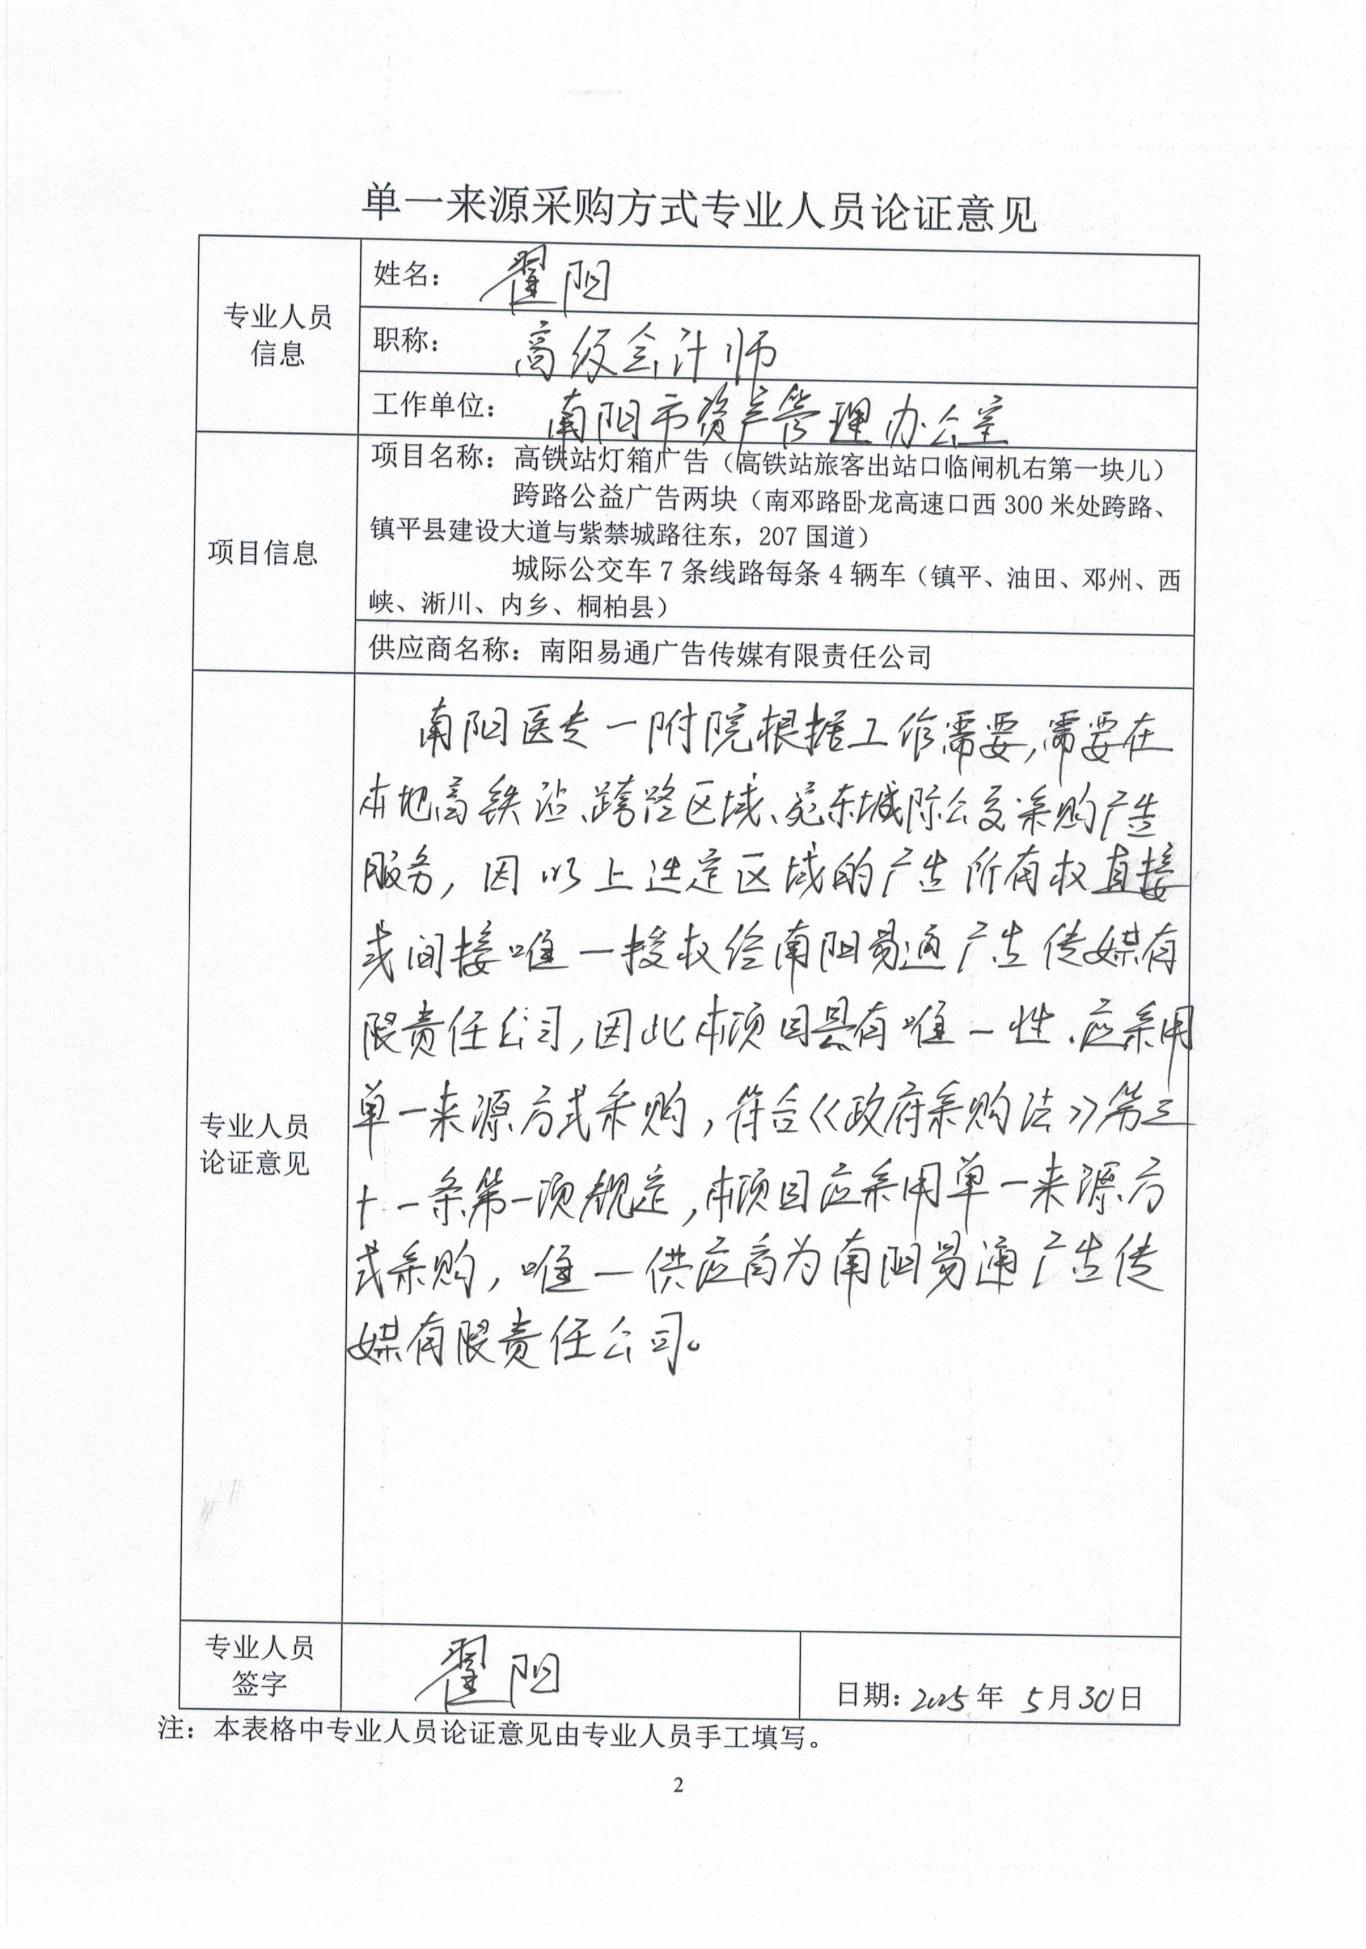 单一来源采购方式专业人员论证意见
专业人员
信息
姓名：翟阳
职称：高级会计师
工作单位：南阳市资产管理办公室
项目信息
项目名称：高铁站灯箱广告（高铁站旅客出站口临闸机右第一块儿）
跨路公益广告两块（南邓路卧龙高速口西 300 米处跨路、
镇平县建设大道与紫禁城路往东，207 国道）
城际公交车 7 条线路每条 4 辆车（镇平、油田、邓州、西
峡、淅川、内乡、桐柏县）
供应商名称：南阳易通广告传媒有限责任公司
专业人员
论证意见
南阳医专一附院根据工作需要，需要在
本地高铁站、跨路区域、宛东城际公交采购广告
服务，因以上选定区域的广告所有权直接
或间接唯一授权给南阳易通广告传媒有
限责任公司，因此本项目具有唯一性，应采用
单一来源方式采购，符合《政府采购法》第三
十一条第一项规定，本项目应采用单一来源方
式采购，唯一供应商为南阳易通广告传
媒有限责任公司。
专业人员
签字
翟阳
日期：2025年 5月30日
注：本表格中专业人员论证意见由专业人员手工填写。
2